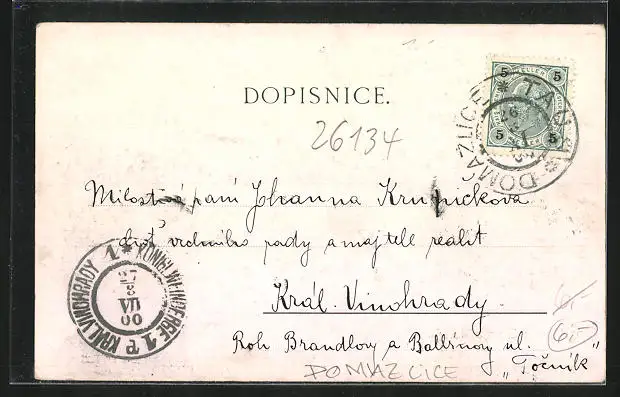 DOPISNICE.
26134
5 HELLER 5
5 5
TAUS * DOMAŽLICE *
26
Milostivá paní Johanna Krupičkova
choť vrchního rady a majitele realit
Král. Vinohrady.
Roh Brandlovy a Ballínovy ul.
"Točník"
KÖNIGL. WEINBERGE 1 * KRÁL. VINOHRADY 1
27
8
VII
00
6,-
6,-
DOMAZLICE